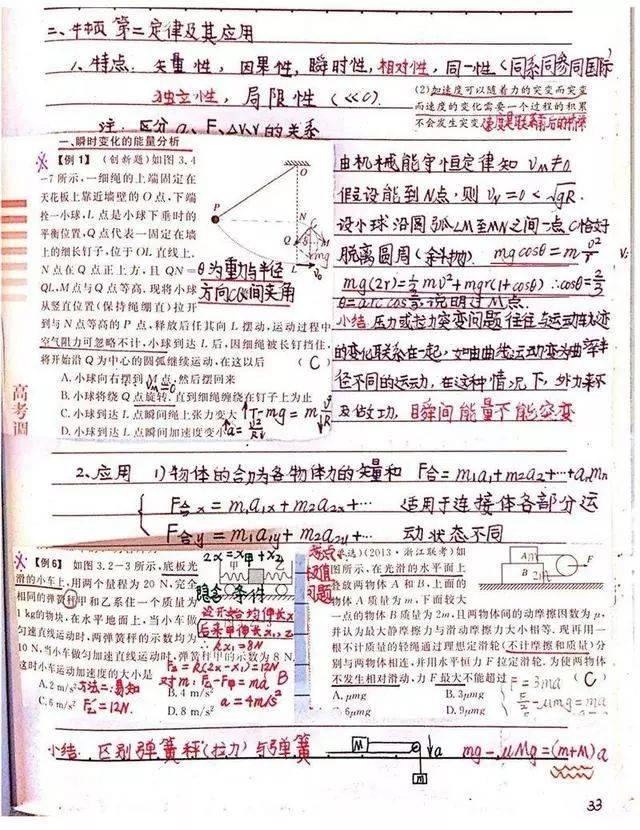 二、牛顿第二定律及其应用
1、特点:矢量性,因果性,瞬时性,相对性,同一性(同系同参同国际)
独立性,局限性(<<c).
(2)加速度可以随着力的突变而突变
而速度的变化需要一个过程的积累
不会发生突变
注:区分a、F、ΔV、V的关系
一、瞬时变化的能量分析
【例1】(创新题)如图3.4
-7所示,一细绳的上端固定在
天花板上靠近墙壁的O点,下端
拴一小球,L点是小球下垂时的
平衡位置,Q点代表一固定在墙
上的细长钉子,位于OL直线上,
N点在Q点正上方,且QN=
QL,M点与Q点等高,现将小球
从竖直位置(保持绳绷直)拉开
到与N点等高的P点,释放后任其向L摆动,运动过程中
空气阻力可忽略不计,小球到达L后,因细绳被长钉挡住,
将开始沿Q为中心的圆弧继续运动,在这以后 (C)
A.小球向右摆到M点,然后摆回来
B.小球将绕Q点旋转,直到细绳绕在钉子上为止
C.小球到达L点瞬间绳上张力变大↑T-mg=m v²/R
D.小球到达L点瞬间加速度变小↑a=v²/R
O
P
N
Q
M
mg
L
v₀
θ为重力与半径
方向CQ间夹角
由机械能守恒定律知 v_M≠0
假设能到N点,则 v_N=0<√gR.
设小球沿圆弧LM至MN之间一点C恰好
脱离圆周(斜抛) mgcosθ=m v²/r
mg(2r)=½mv²+mgr(1+cosθ) ∴cosθ=2/3
θ=arccos⅔说明过M点.
小结:压力或拉力突变问题往往与运动轨迹
的变化联系在一起,如由曲线运动变为曲率半
径不同的运动,在这种情况下,外力来不
及做功,瞬间能量不能突变
高考调
2、应用 1)物体的合力为各物体力的矢量和 F合=m₁a₁+m₂a₂+…+aₙmₙ
F合x=m₁a₁x+m₂a₂x+… 适用于连接体各部分运
F合y=m₁a₁y+m₂a₂y+… 动状态不同
【例6】 如图3.2-3所示,底板光
滑的小车上,用两个量程为20 N,完全
相同的弹簧秤甲和乙系住一个质量为
1 kg的物块,在水平地面上,当小车做
匀速直线运动时,两弹簧秤的示数均为
10 N,当小车做匀加速直线运动时,弹簧秤甲的示数为8 N,
这时小车运动加速度的大小是 B
A.2 m/s² B.4 m/s²
C.6 m/s² D.8 m/s²
方法二:易知
F乙=12N.
2x=x甲+x乙
甲
隐含条件
设开始均伸长x
后来甲伸长x₁,乙
kx₁=8N
F乙=k(2x-x₁)=12N
对m:F乙-F甲=ma
a=4m/s²
考点
极值
问题
选)(2013·浙江联考)如
图所示,在光滑的水平面上
叠放两物体A和B,上面的
物体A质量为m,下面较大
一点的物体B质量为2m,且两物体间的动摩擦因数为μ,
并认为最大静摩擦力与滑动摩擦力大小相等.现再用一
根不计质量的轻绳通过理想定滑轮(不计摩擦和质量)分
别与两物体相连,并用水平恒力F拉定滑轮.为使两物体
不发生相对滑动,力F最大不能超过 (C)
A.μmg B.3μmg
C.6μmg D.9μmg
A m
B 2m
F
F=3ma
F/2-μmg=ma
小结:区别弹簧秤(拉力)与弹簧
M
m
a
mg-μMg=(m+M)a
33